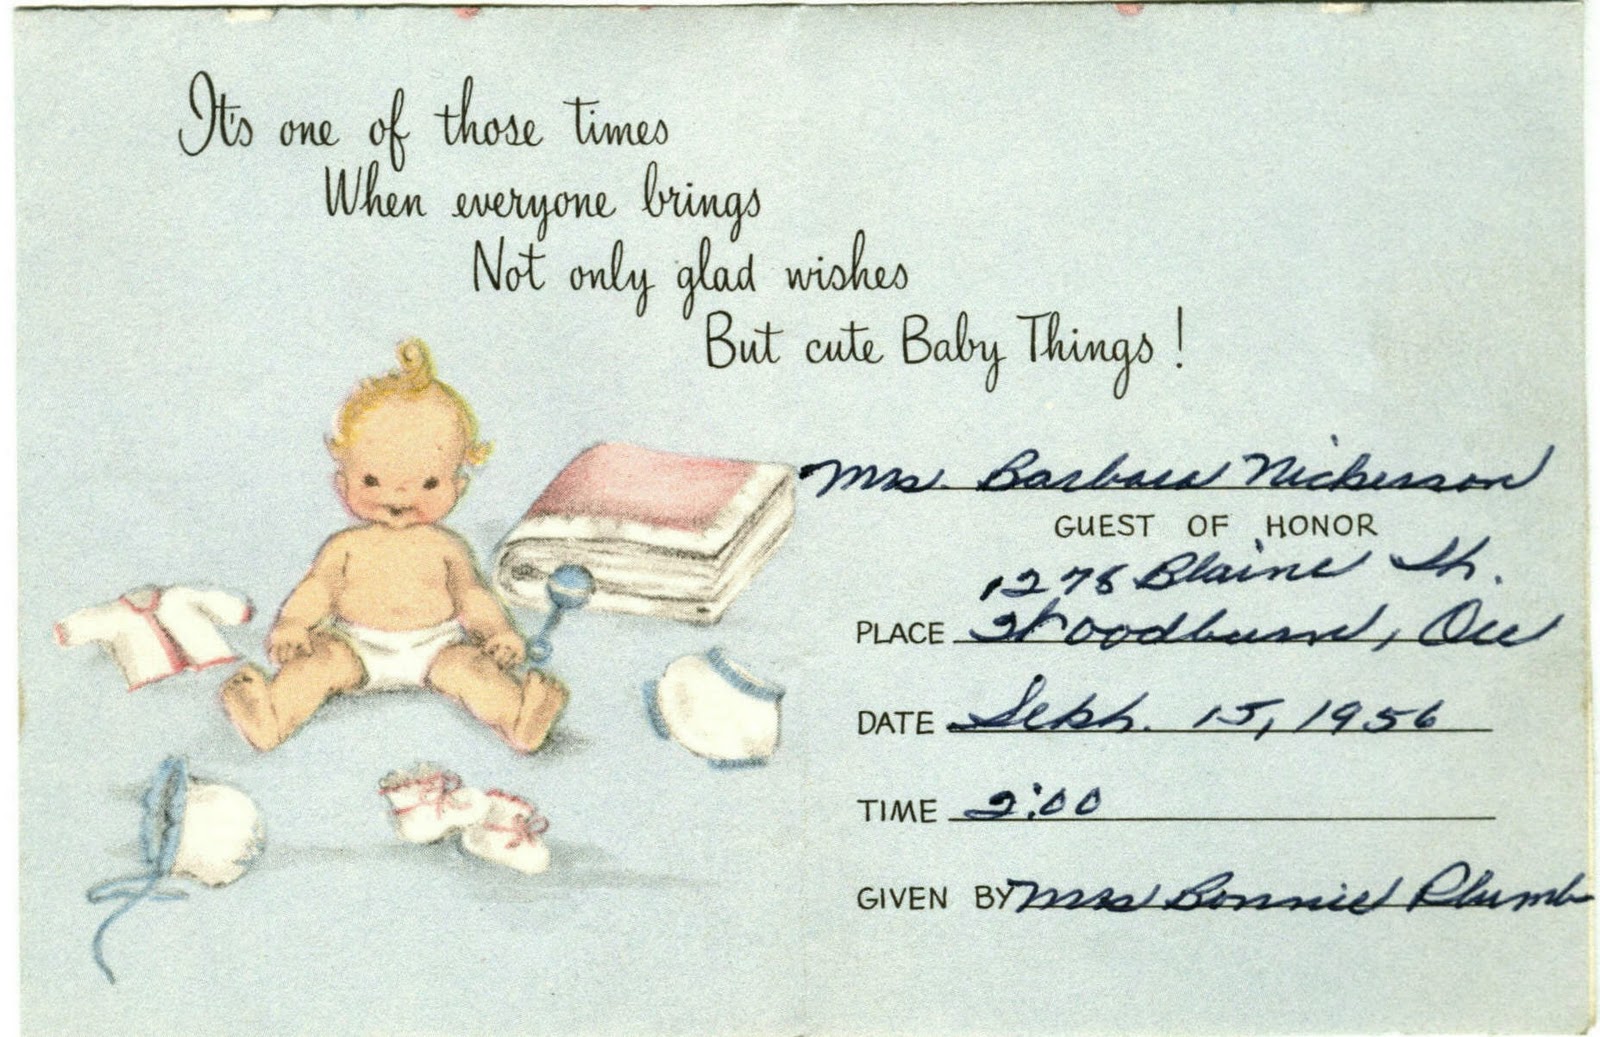 It's one of those times
When everyone brings
Not only glad wishes
But cute Baby Things!
Mrs. Barbara Nickerson
GUEST OF HONOR
1278 Blaine St.
PLACE Woodburn, Ore
DATE Sept. 15, 1956
TIME 2:00
GIVEN BY Mrs Bonnie Plumb